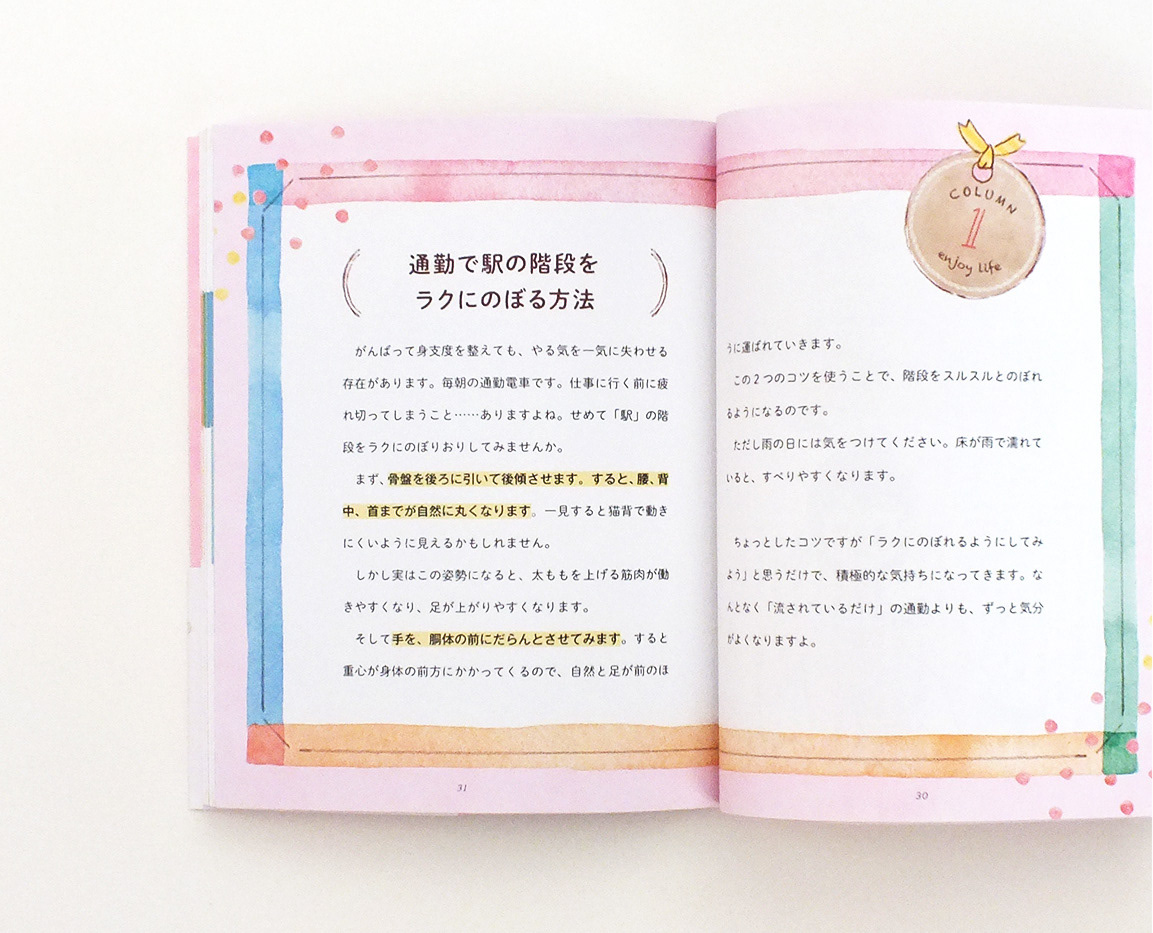 通勤で駅の階段を
ラクにのぼる方法
がんばって身支度を整えても、やる気を一気に失わせる
存在があります。毎朝の通勤電車です。仕事に行く前に疲
れ切ってしまうこと……ありますよね。せめて「駅」の階
段をラクにのぼりおりしてみませんか。
まず、骨盤を後ろに引いて後傾させます。すると、腰、背
中、首までが自然に丸くなります。一見すると猫背で動き
にくいように見えるかもしれません。
しかし実はこの姿勢になると、太ももを上げる筋肉が働
きやすくなり、足が上がりやすくなります。
そして手を、胴体の前にだらんとさせてみます。すると
重心が身体の前方にかかってくるので、自然と足が前のほ
31
COLUMN
1
enjoy life
うに運ばれていきます。
この2つのコツを使うことで、階段をスルスルとのぼれ
るようになるのです。
ただし雨の日には気をつけてください。床が雨で濡れて
いると、すべりやすくなります。
ちょっとしたコツですが「ラクにのぼれるようにしてみ
よう」と思うだけで、積極的な気持ちになってきます。な
んとなく「流されているだけ」の通勤よりも、ずっと気分
がよくなりますよ。
30